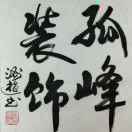 孤峰
装饰